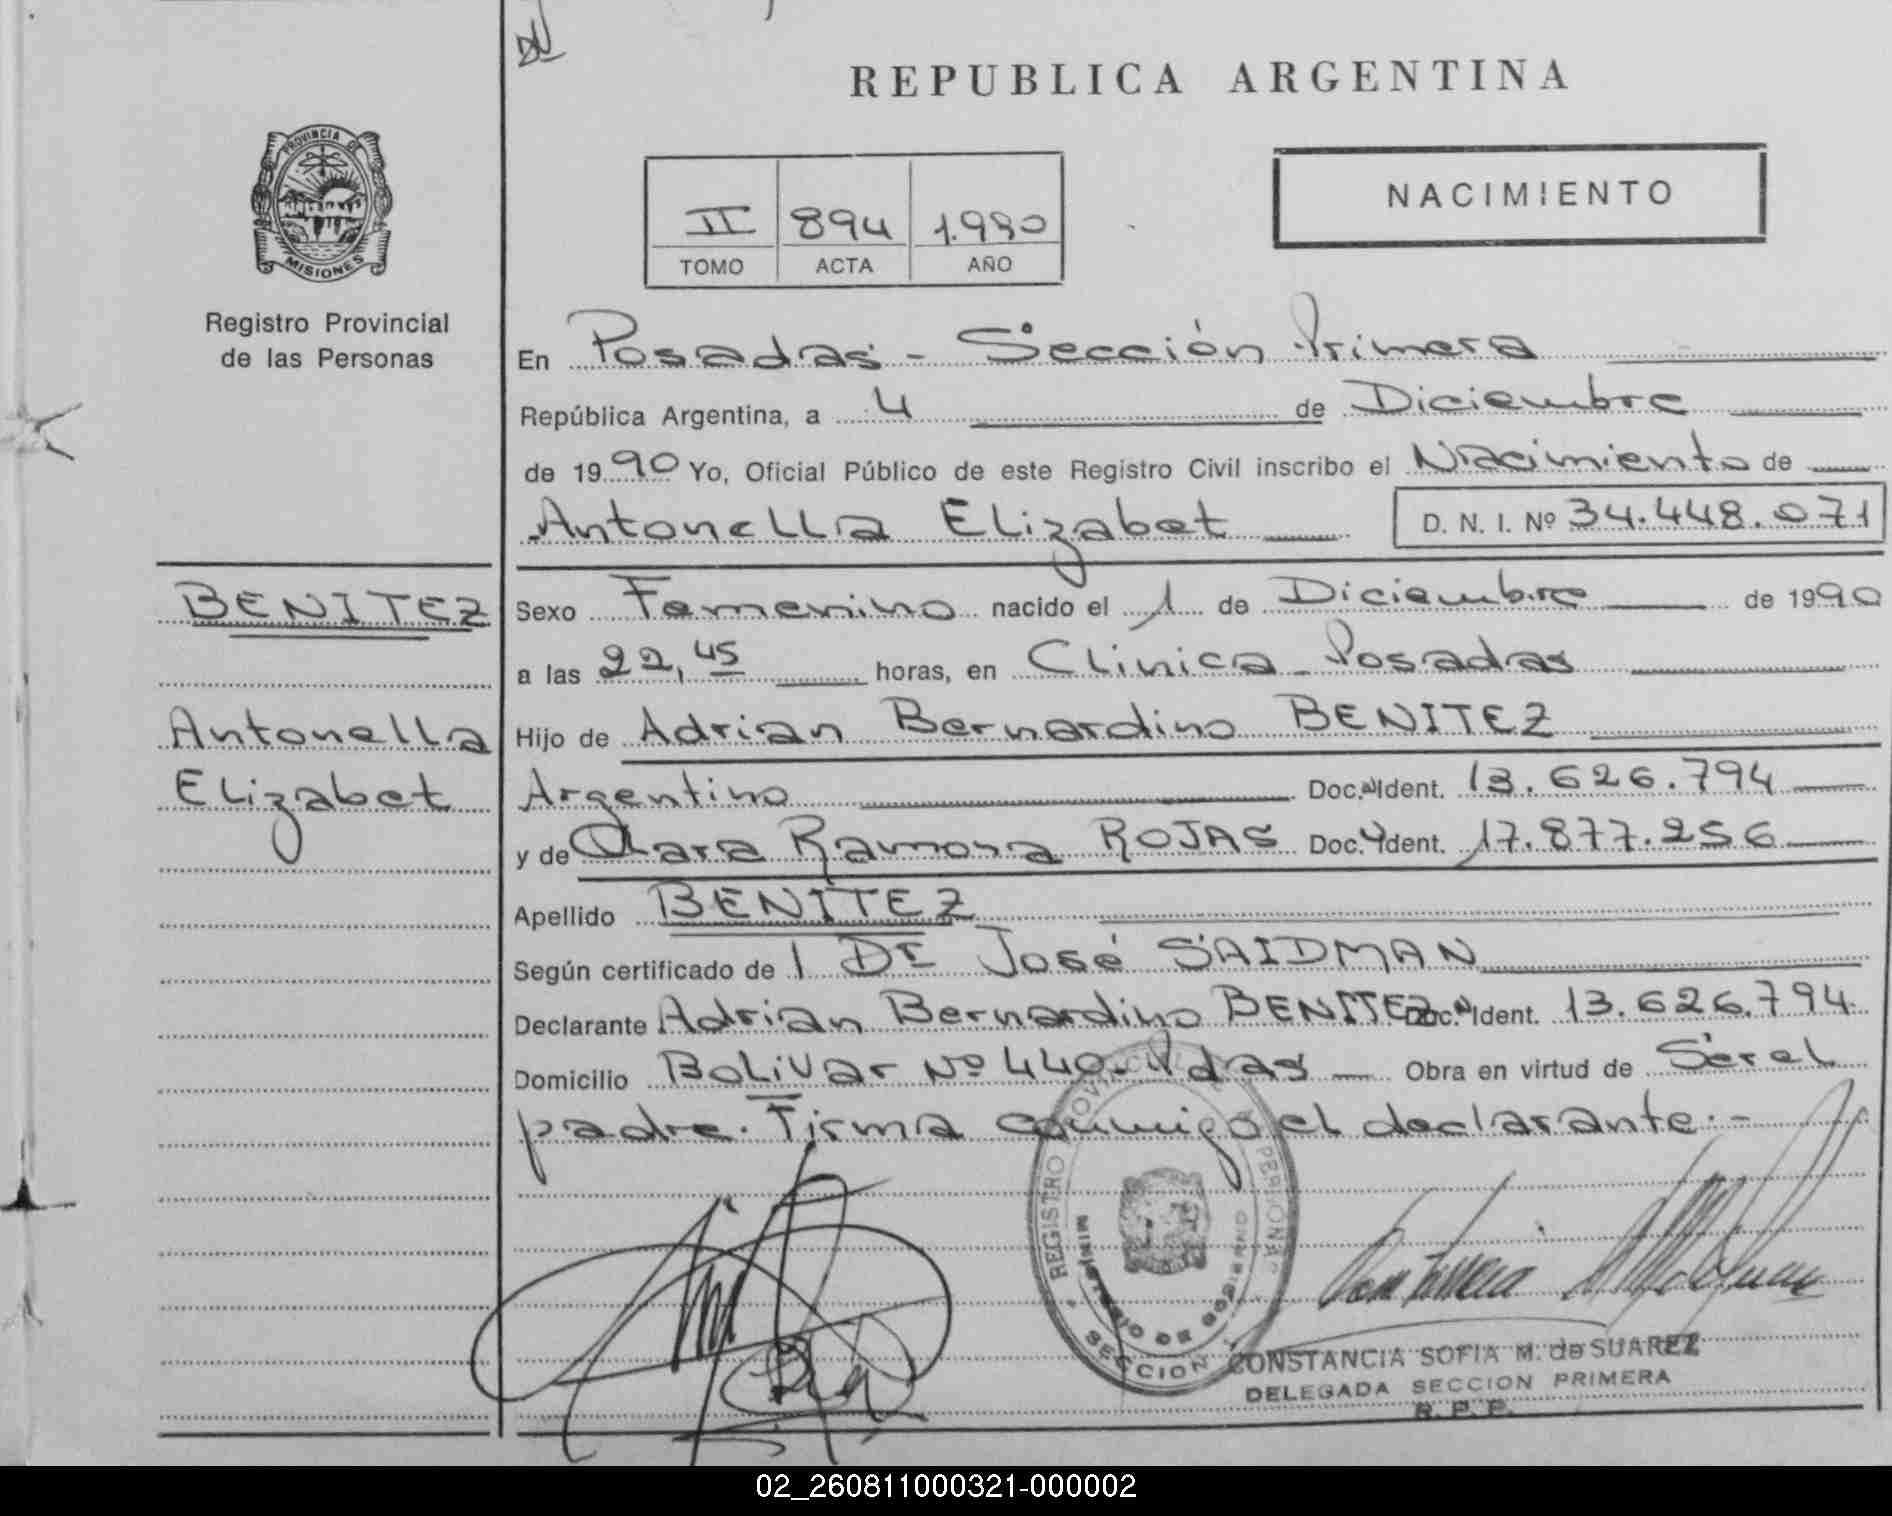 REPUBLICA ARGENTINA
PROVINCIA DE
MISIONES
NACIMIENTO
II 894 1.990
TOMO ACTA AÑO
Registro Provincial
de las Personas
En Posadas - Sección Primera
República Argentina, a 4 de Diciembre
de 1990 Yo, Oficial Público de este Registro Civil inscribo el Nacimiento de
Antonella Elizabet D. N. I. Nº 34.448.071
BENITEZ
Antonella
Elizabet
Sexo Femenino nacido el 1 de Diciembre de 1990
a las 22,45 horas, en Clinica Posadas
Hijo de Adrian Bernardino BENITEZ
Argentino Doc. Ident. 13.626.794
y de Clara Ramona ROJAS Doc. Ident. 17.877.256
Apellido BENITEZ
Según certificado de 1 Dr José SAIDMAN
Declarante Adrian Bernardino BENITEZ Doc. Ident. 13.626.794
Domicilio Bolivar Nº 440 - Pdas - Obra en virtud de Ser el
padre. Firma conmigo el declarante.-
REGISTRO PROVINCIAL
MINISTERIO DE GOBIERNO
SECCION 1
CONSTANCIA SOFIA M. de SUAREZ
DELEGADA SECCION PRIMERA
R. P. P.
02_260811000321-000002